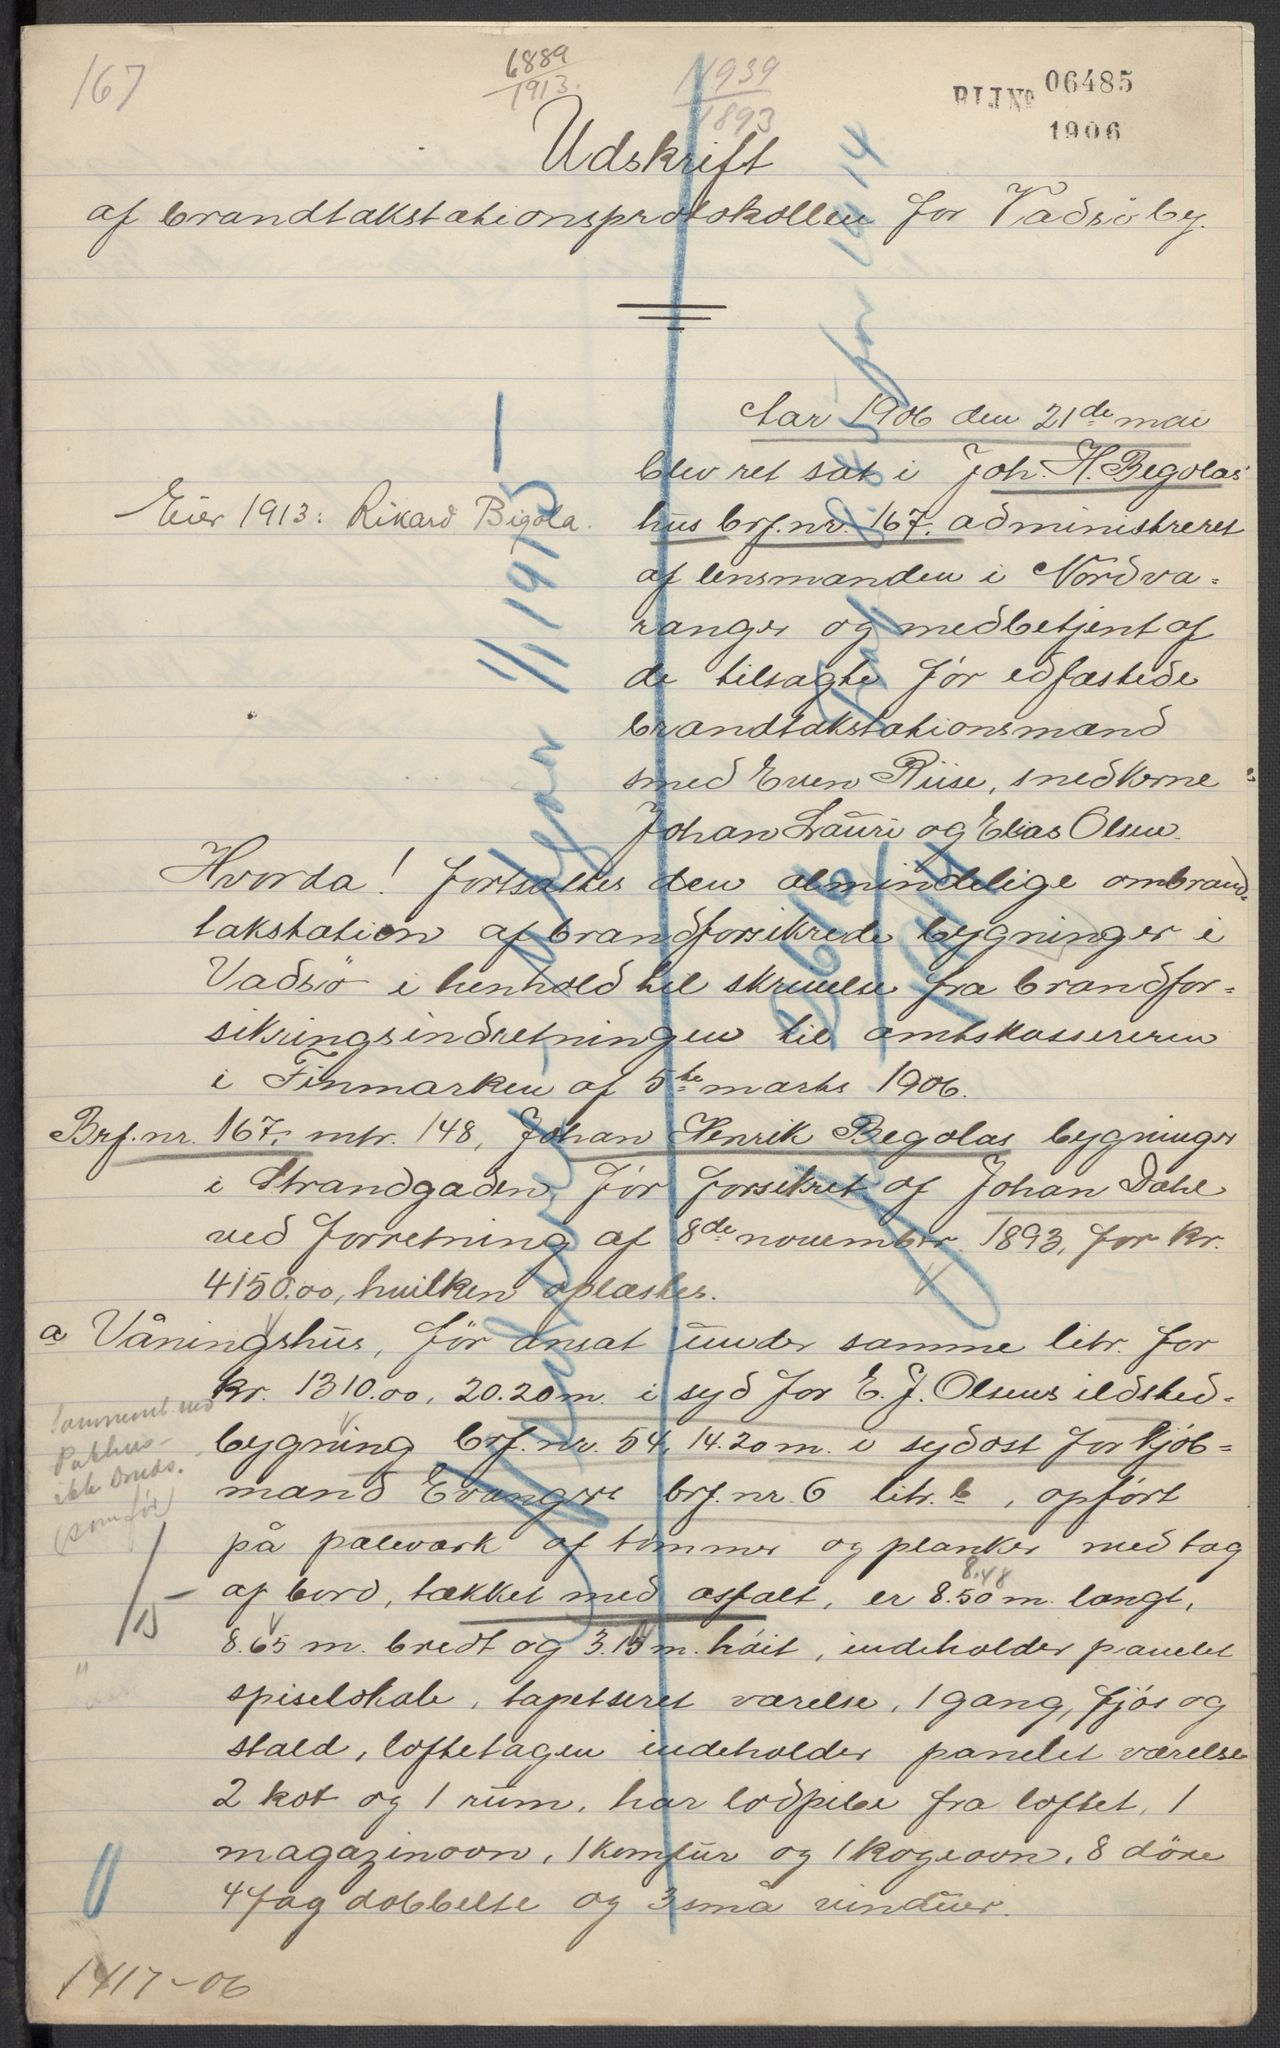 167
6889
1913.
1939
1893
BIJNo 06485
1906
Udskrift
af brandtakstationsprotokollen for Vadsö by.
Aar 1906 den 21de mai
blev ret sat i Joh. H. Begolas
Eier 1913: Rikard Bigola.
hus brf.nr. 167, administreret
af lensmanden i Nordva=
ranger og medbetjent af
de tilsagte før edfæstede
brandtakstationsmænd
smed Even Riise, snedkerne
Johan Lauri og Elias Olsen.
Hvorda! fortsattes den almindelige ombrand=
takstation af brandforsikrede bygninger i
Vadsö i henhold til skrivelse fra brandfor=
sikringsindretningen til amtskassereren
i Finmarken af 5te marts 1906.
Brf.nr. 167, mtr. 148, Johan Henrik Begolas bygninger
i Strandgaden før forsikret af Johan Dahl
ved forretning af 8de november 1893, for kr.
4150.00, hvilken oplæstes.
a Våningshus, før ansat under samme litr. for
kr. 1310.00, 20.20 m. i syd for E. J. Olsens ildsted=
bygning brf.nr. 54, 14.20 m. i sydost for kjöb=
mand Evangers brf.nr. 6 litr. b, opført
Sammenb. med
Pakhus
ikke
(som før)
på palværk af tömmer og planker med tag
af bord, tækket med asfalt, er 8.50 m. langt,
8.48
8.65 m. bredt og 3.15 m. höit, indeholder panelet
15
spiselokale, tapetseret værelse, 1 gang, fjös og
stald, loftetagen indeholder panelet værelse
2 kot og 1 rum, har lodpibe fra loftet, 1
magazinovn, 1 komfur og 1 kogeovn, 8 döre
4 fag dobbelte og 3 små vinduer.
1417-06
1/1 1915
for 1914
2616
1914